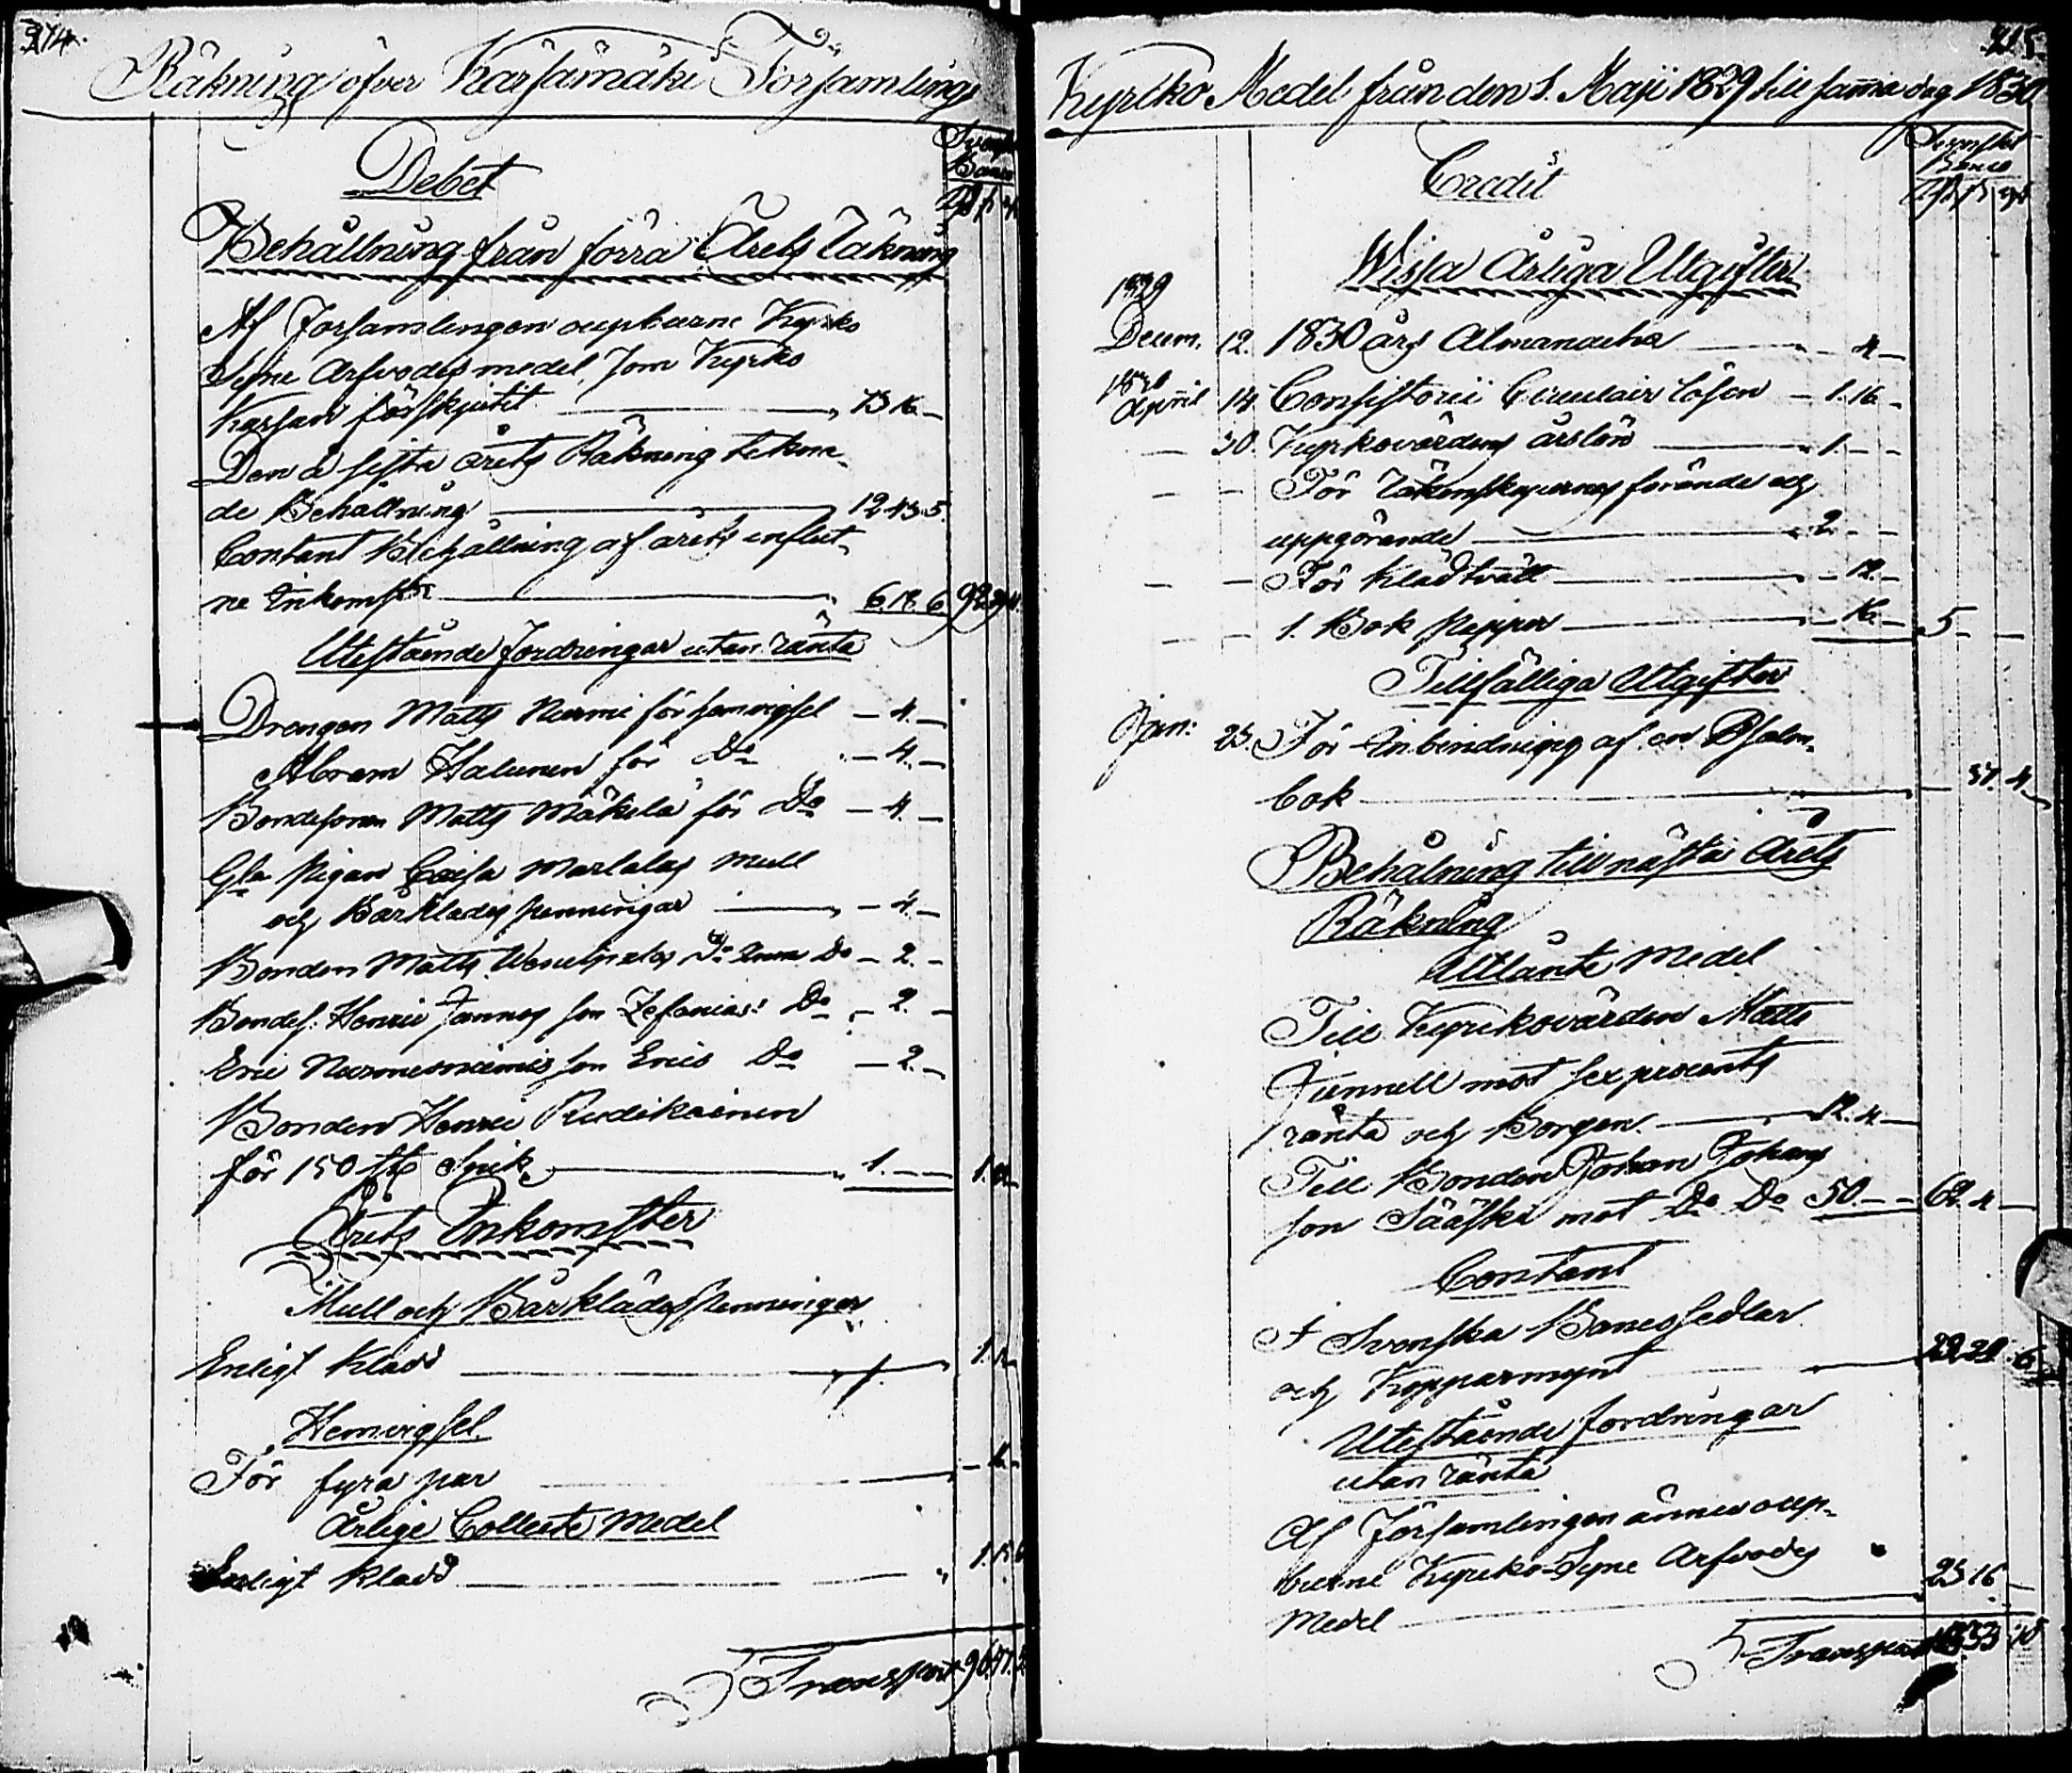 214.
Räkning öfver Kärsämäki Församlings
Debet
Svenskt
Banco
Rd ſ rst
Behållning från förra Årets Räkning
Af Församlingen oupburne Kyrko
Syne Arfvodes medel, som Kyrko
Kassan förskjutit 73 16 –
Den å sista årets Räkning tekom-
de Behållning 12 43. 5.
Contant Behållning af årets influt-
ne Inkomster 6. 18. 6
Utestående fordringar utan ränta
Drengen Matts Nurmi för hemvigsel – 4. –
Abram Halunen för Do – 4. –
Bondesonen Matts Mäkelä för Do – 4. –
Gla Pigan Caisa Marlalas Mull
och Bårklädes penningar – 4. –
Bonden Matts Do Do – 2. –
Bondes. Henric Jannes son Zefanias: Do – 2. –
Eric Nurmesniemis son Erics Do – 2. –
Bonden Henric
för 150 st. Spik 1. – –
Årets Inkomster
Mull och Bårklädes Penningar
Enligt Kladd
Hemvigsel
För fyra par
Årlige Collecte Medel
Enligt Kladd
Transport
215.
Kyrko Medel från den 1. Maji 1829 till samma dag 1830
Credit
Svenskt
Banco
Rd ſ rst
Wissa Årliga Utgifter
1829
Decem. 12. 1830 års Almanacha – 4 –
1830
April 14 Consistorii Circulair lösen – 1. 16. –
– 30. Kyrkovärdens årslön 1. – –
– – För räkenskapernas förande och
uppgörande 2. – –
– – För Klädtvätt – 12. –
– – 1. Bok Papper – 16. – 5 – –
Tillfälliga Utgifter
Jan: 23. För Inbindning af en Psalm-
bok 37. 4
Behålning till nästa Årets
Räkning
Utlånte Medel
Till Kyrkovärden Matts
Junnell mot sex procents
ränta och Borgen. 12. 4 –
Till Bonden Johan Johans
son Sääski mot Do Do 50 – – 62. 4 –
Contant
I Svenska Bancosedlar
och Kopparmynt
Utestående fordringar
utan ränta
Af Församlingen ännu oup-
burne Kyrko-Syne Arfvodes
Medel 23 16 –
Transport